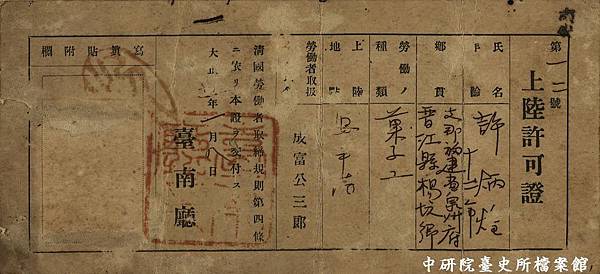 第一二號
上陸許可證
氏名
許炳
年齡
十二年
鄉貫
支那福建省泉州府
晋江縣楊坑鄉
勞働ノ種類
菓子工
上陸地點
安平港
勞働者取扱
成富公三郎
清國勞働者取締規則第四條
ニ依リ本證ヲ交付ス
大正年一月八日
臺南廳
寫真貼附欄
中研院臺史所檔案館